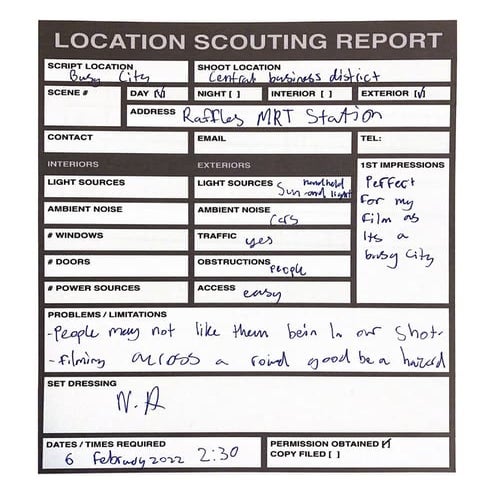 LOCATION SCOUTING REPORT
SCRIPT LOCATION
Busy City
SHOOT LOCATION
Central business district
SCENE #
DAY [✓]
NIGHT [ ]
INTERIOR [ ]
EXTERIOR [✓]
ADDRESS Raffles MRT Station
CONTACT
EMAIL
TEL:
INTERIORS
EXTERIORS
1ST IMPRESSIONS
Perfect
for my
film as
its a
busy City
LIGHT SOURCES
LIGHT SOURCES Sun and handheld light
AMBIENT NOISE
AMBIENT NOISE
Cars
# WINDOWS
TRAFFIC yes
# DOORS
OBSTRUCTIONS People
# POWER SOURCES
ACCESS easy
PROBLEMS / LIMITATIONS
-People may not like them bein In our Shot.
-filming across a road good be a hazard
SET DRESSING
N.A
DATES / TIMES REQUIRED
6 February 2022 2:30
PERMISSION OBTAINED [✓]
COPY FILED [ ]